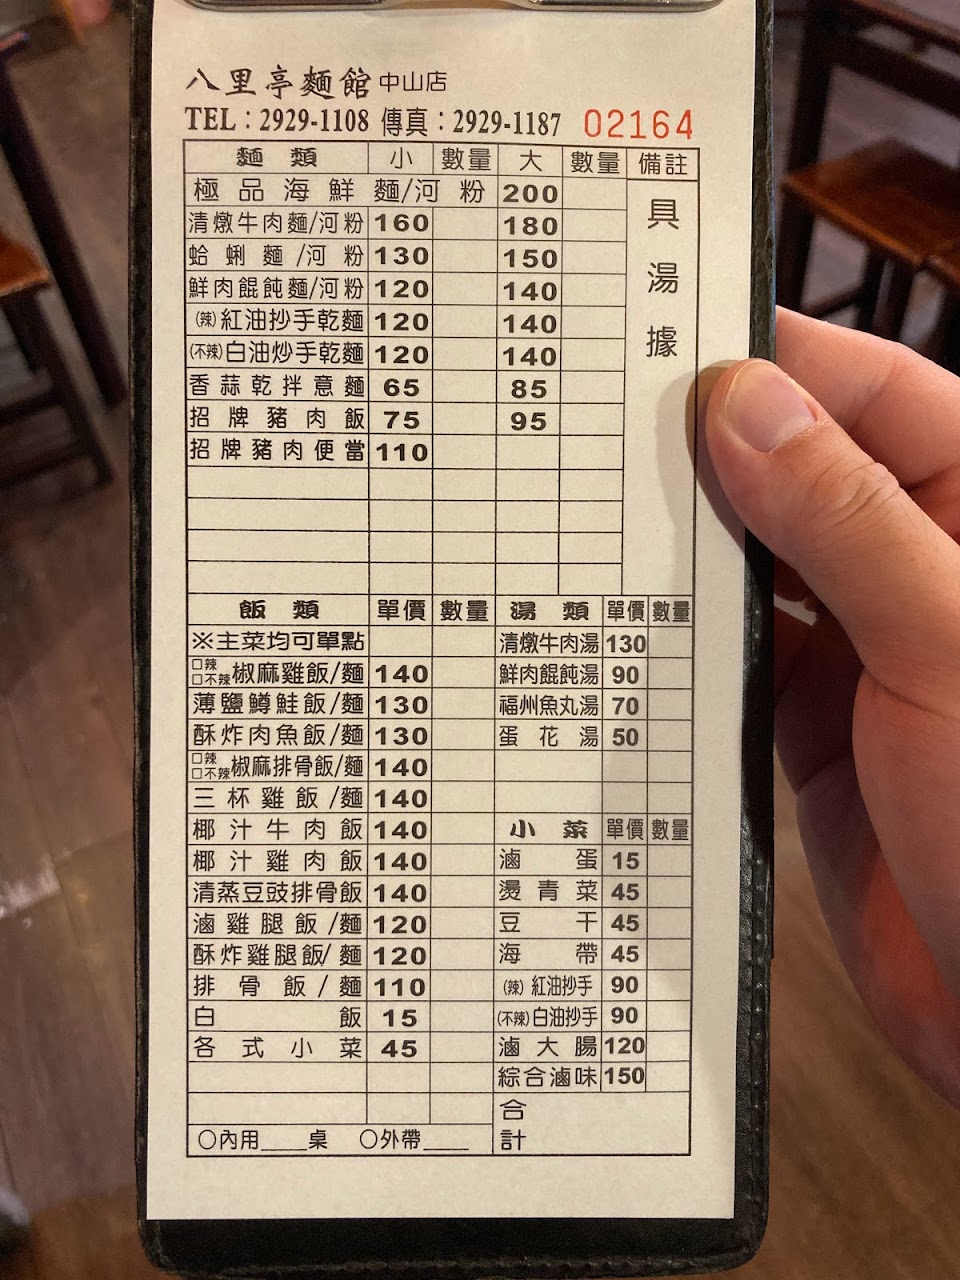 八里亭麵館 中山店
TEL：2929-1108 傳真：2929-1187 02164
麵類 小 數量 大 數量 備註
極品海鮮麵/河粉 200
清燉牛肉麵/河粉 160 180
蛤蜊麵/河粉 130 150
鮮肉餛飩麵/河粉 120 140
(辣)紅油抄手乾麵 120 140
(不辣)白油炒手乾麵 120 140
香蒜乾拌意麵 65 85
招牌豬肉飯 75 95
招牌豬肉便當 110
具湯據
飯類 單價 數量
※主菜均可單點
□辣 □不辣 椒麻雞飯/麵 140
薄鹽鱒鮭飯/麵 130
酥炸肉魚飯/麵 130
□辣 □不辣 椒麻排骨飯/麵 140
三杯雞飯/麵 140
椰汁牛肉飯 140
椰汁雞肉飯 140
清蒸豆豉排骨飯 140
滷雞腿飯/麵 120
酥炸雞腿飯/麵 120
排骨飯/麵 110
白飯 15
各式小菜 45
○內用____桌 ○外帶____
湯類 單價 數量
清燉牛肉湯 130
鮮肉餛飩湯 90
福州魚丸湯 70
蛋花湯 50
小菜 單價 數量
滷蛋 15
燙青菜 45
豆干 45
海帶 45
(辣)紅油抄手 90
(不辣)白油抄手 90
滷大腸 120
綜合滷味 150
合計